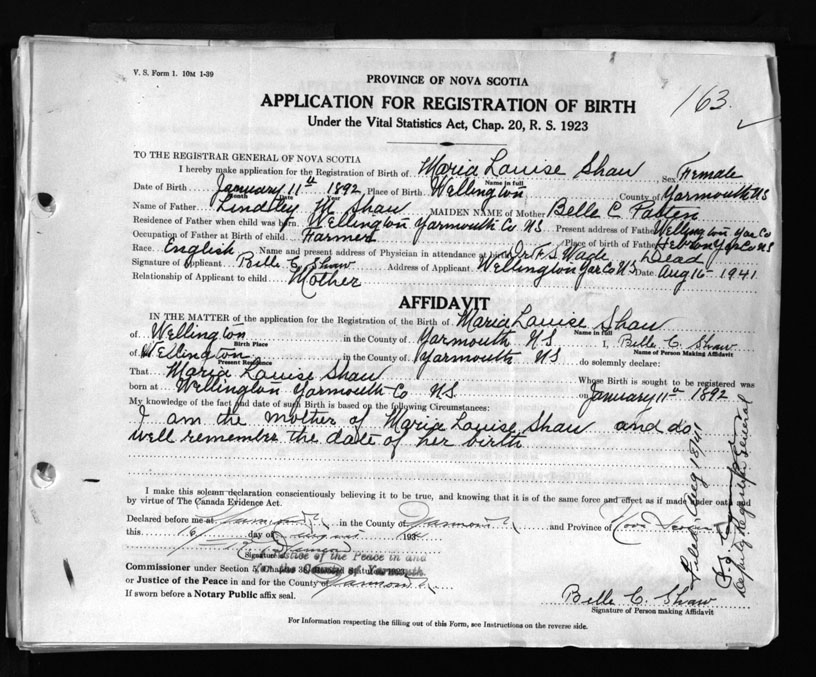 V. S. Form 1. 10M 1-39
PROVINCE OF NOVA SCOTIA
APPLICATION FOR REGISTRATION OF BIRTH
163.
Under the Vital Statistics Act, Chap. 20, R. S. 1923
TO THE REGISTRAR GENERAL OF NOVA SCOTIA
I hereby make application for the Registration of Birth of Maria Louise Shaw Sex Female
Name in full
Date of Birth January 11th 1892 Place of Birth Wellington County of Yarmouth NS
Month Date Year
Name of Father Lindley M. Shaw MAIDEN NAME of Mother Belle C
Residence of Father when child was born Wellington Yarmouth Co NS Present address of Father Wellington Yar Co
Occupation of Father at Birth of child Farmer Place of birth of Father Hebron Yar Co NS
Race English Name and present address of Physician in attendance at birth Dr F S Dead
Signature of Applicant Belle C. Shaw Address of Applicant Wellington Yar Co NS Date Aug 16 1941
Relationship of Applicant to child Mother
AFFIDAVIT
IN THE MATTER of the application for the Registration of the Birth of Maria Louise Shaw
Name in full
of Wellington in the County of Yarmouth NS I, Belle C. Shaw
Birth Place Name of Person Making Affidavit
of Wellington in the County of Yarmouth NS do solemnly declare:
Present Residence
That Maria Louise Shaw Whose Birth is sought to be registered was
born at Wellington Yarmouth Co NS. on January 11th 1892
My knowledge of the fact and date of such Birth is based on the following Circumstances:
I am the mother of Maria Louise Shaw and do
well remember the date of her birth
I make this solemn declaration conscientiously believing it to be true, and knowing that it is of the same force and effect as if made under oath and
by virtue of The Canada Evidence Act.
Declared before me at Yarmouth in the County of Yarmouth and Province of Nova Scotia
this 16 day of August 194
Signature
Justice of the Peace in and
for the County of Yarmouth
Commissioner under Section 5, Chapter
or Justice of the Peace in and for the County of Yarmouth
If sworn before a Notary Public affix seal.
Belle C. Shaw
Signature of Person making Affidavit
For Information respecting the filling out of this Form, see Instructions on the reverse side.
Filed Aug 18/41
Deputy Registrar General